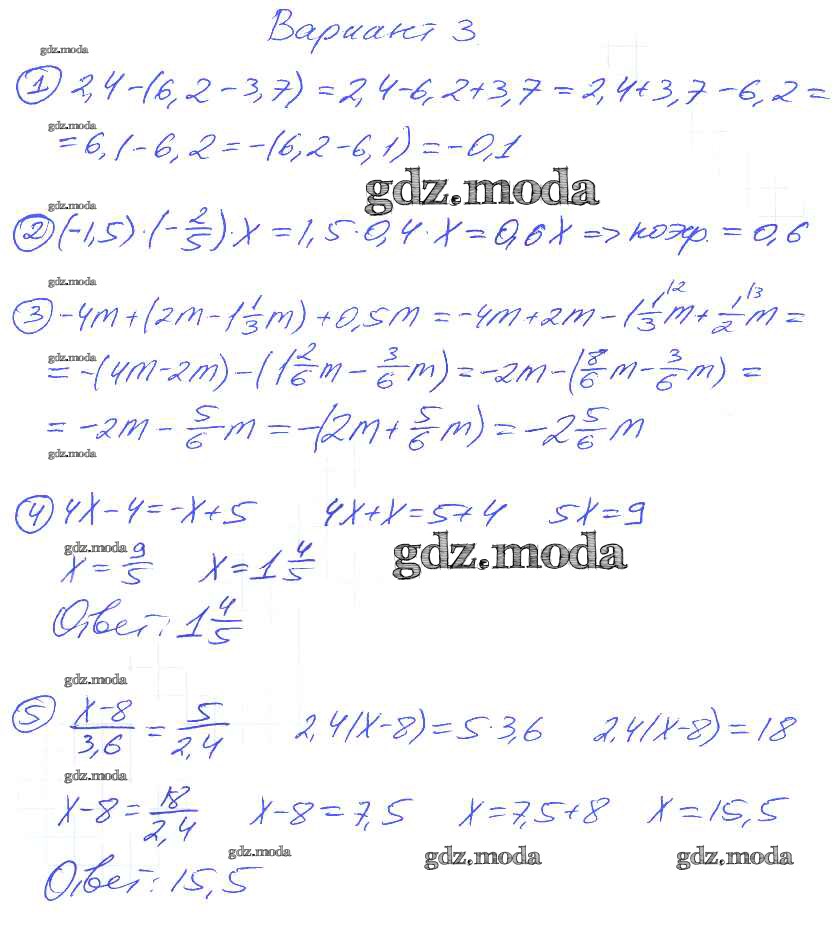 Вариант 3
gdz.moda
① 2,4-(6,2-3,7)=2,4-6,2+3,7=2,4+3,7-6,2=
gdz.moda
=6,1-6,2=-(6,2-6,1)=-0,1
gdz.moda
gdz.moda
② (-1,5)·(-2/5)·x=1,5·0,4·x=0,6x=>коэф.=0,6
gdz.moda
③ -4m+(2m-1 1/3m)+0,5m=-4m+2m-1 1/3\2m+1/2\3m=
gdz.moda
=-(4m-2m)-(1 2/6m-3/6m)=-2m-(8/6m-3/6m)=
=-2m-5/6m=-(2m+5/6m)=-2 5/6m
gdz.moda
④ 4x-4=-x+5 4x+x=5+4 5x=9
gdz.moda gdz.moda
x=9/5 x=1 4/5
Ответ: 1 4/5
gdz.moda
⑤ (x-8)/3,6=5/2,4 2,4(x-8)=5·3,6 2,4(x-8)=18
gdz.moda
x-8=18/2,4 x-8=7,5 x=7,5+8 x=15,5
gdz.moda gdz.moda gdz.moda
Ответ: 15,5